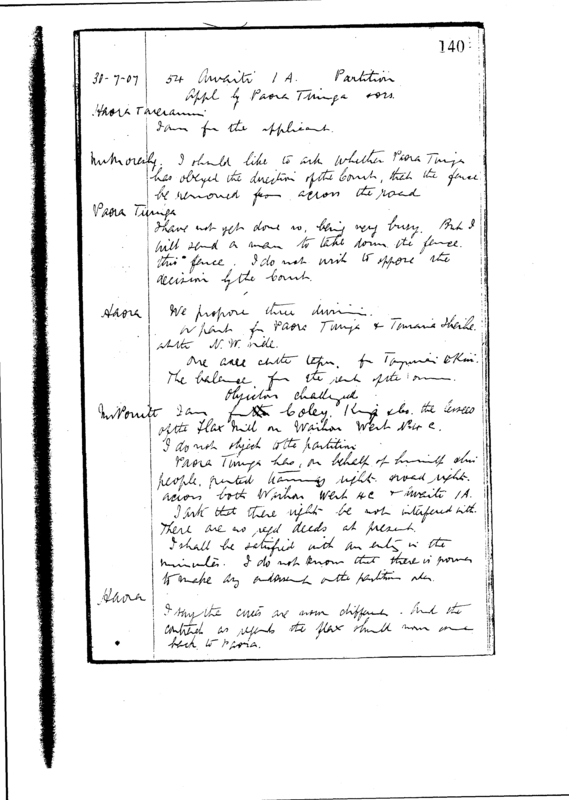 140
30-7-07 54 Awaiti 1A. Partition
Appl by Paora Tiunga & ors.
Haora Tareranui
I am for the applicant.
Mr Moresby. I should like to ask whether Paora Tiunga
has obeyed the direction of the Court, that the fence
be removed from across the road
Paora Tiunga
I have not yet done so, being very busy. But I
will send a man to take down the fence.
this fence. I do not wish to oppose the
decision of the Court.
Haora We propose three divisions.
One part for Paora Tiunga &
at the N.W. side.
One acre at the for
The balance for the rest of the owners.
Objectors challenged
Mr Porritt I am for Coley, King & Co. the lessees
of the flax mill on Waihou West No
I do not object to the partition
Paora Tiunga has, on behalf of himself & his
people, granted tramway right & road right
across both Waihou West & Awaiti 1A.
I ask that these rights be not interfered with.
There are no regd deeds at present.
I shall be satisfied with an entry in the
minutes. I do not know that there is power
to make any endorsement on the partition order.
Haora
I say the are now different. And the
contract as regards the flax should now come
back to Paora.